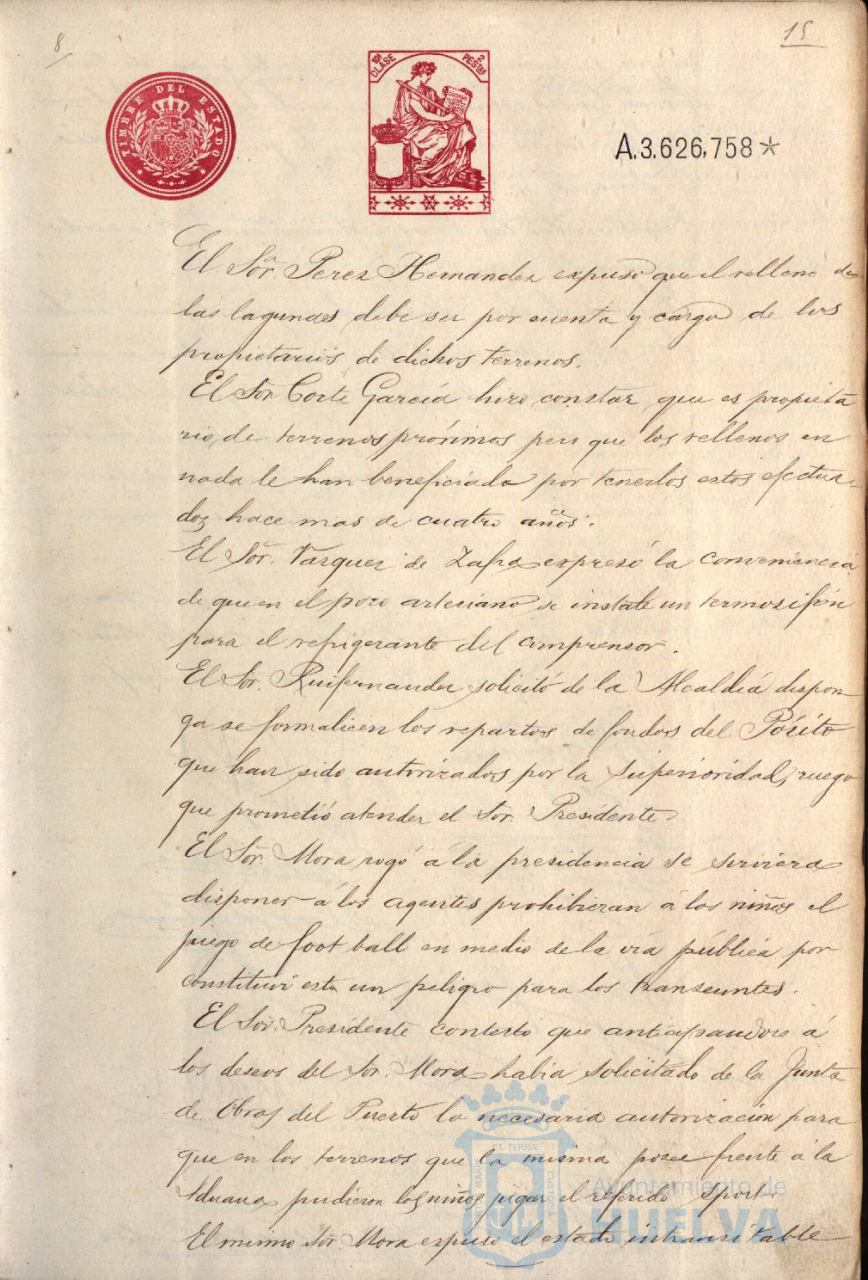 8
15
TIMBRE DEL ESTADO
10ª CLASE 2 PESTAS
A.3.626,758*
El Sor. Perez Hernandez expuso que el relleno de
las lagunas, debe ser por cuenta y cargo de los
propietarios de dichos terrenos.
El Sor. Corte García hizo constar, que es propieta
rio, de terrenos próximos pero que los rellenos en
nada le han beneficiado por tenerlos estos efectua-
dos hace mas de cuatro años.
El Sor. Vazquez de Zafra expresó la conveniencia
de que en el pozo artesiano se instale un termosifón
para el refrigerante del compresor.
El Sor. Ruifernandez solicitó de la Alcaldía dispon-
ga se formalicen los repartos de fondos del Pósito
que han sido autorizados por la Superioridad, ruego
que prometió atender el Sor. Presidente.
El Sor. Mora rogó á la presidencia se sirviera
disponer á los agentes prohibieran á los niños el
juego de foot ball en medio de la vía pública por
constituir esta un peligro para los transeuntes.
El Sor. Presidente contestó que anticipandose á
los deseos del Sor. Mora habia solicitado de la Junta
de Obras del Puerto la necesaria autorización para
que en los terrenos que la misma posee frente á la
Aduana pudieran los niños jugar el referido sport.
El mismo Sor. Mora expuso el estado intransitable
Ayuntamiento de
HUELVA